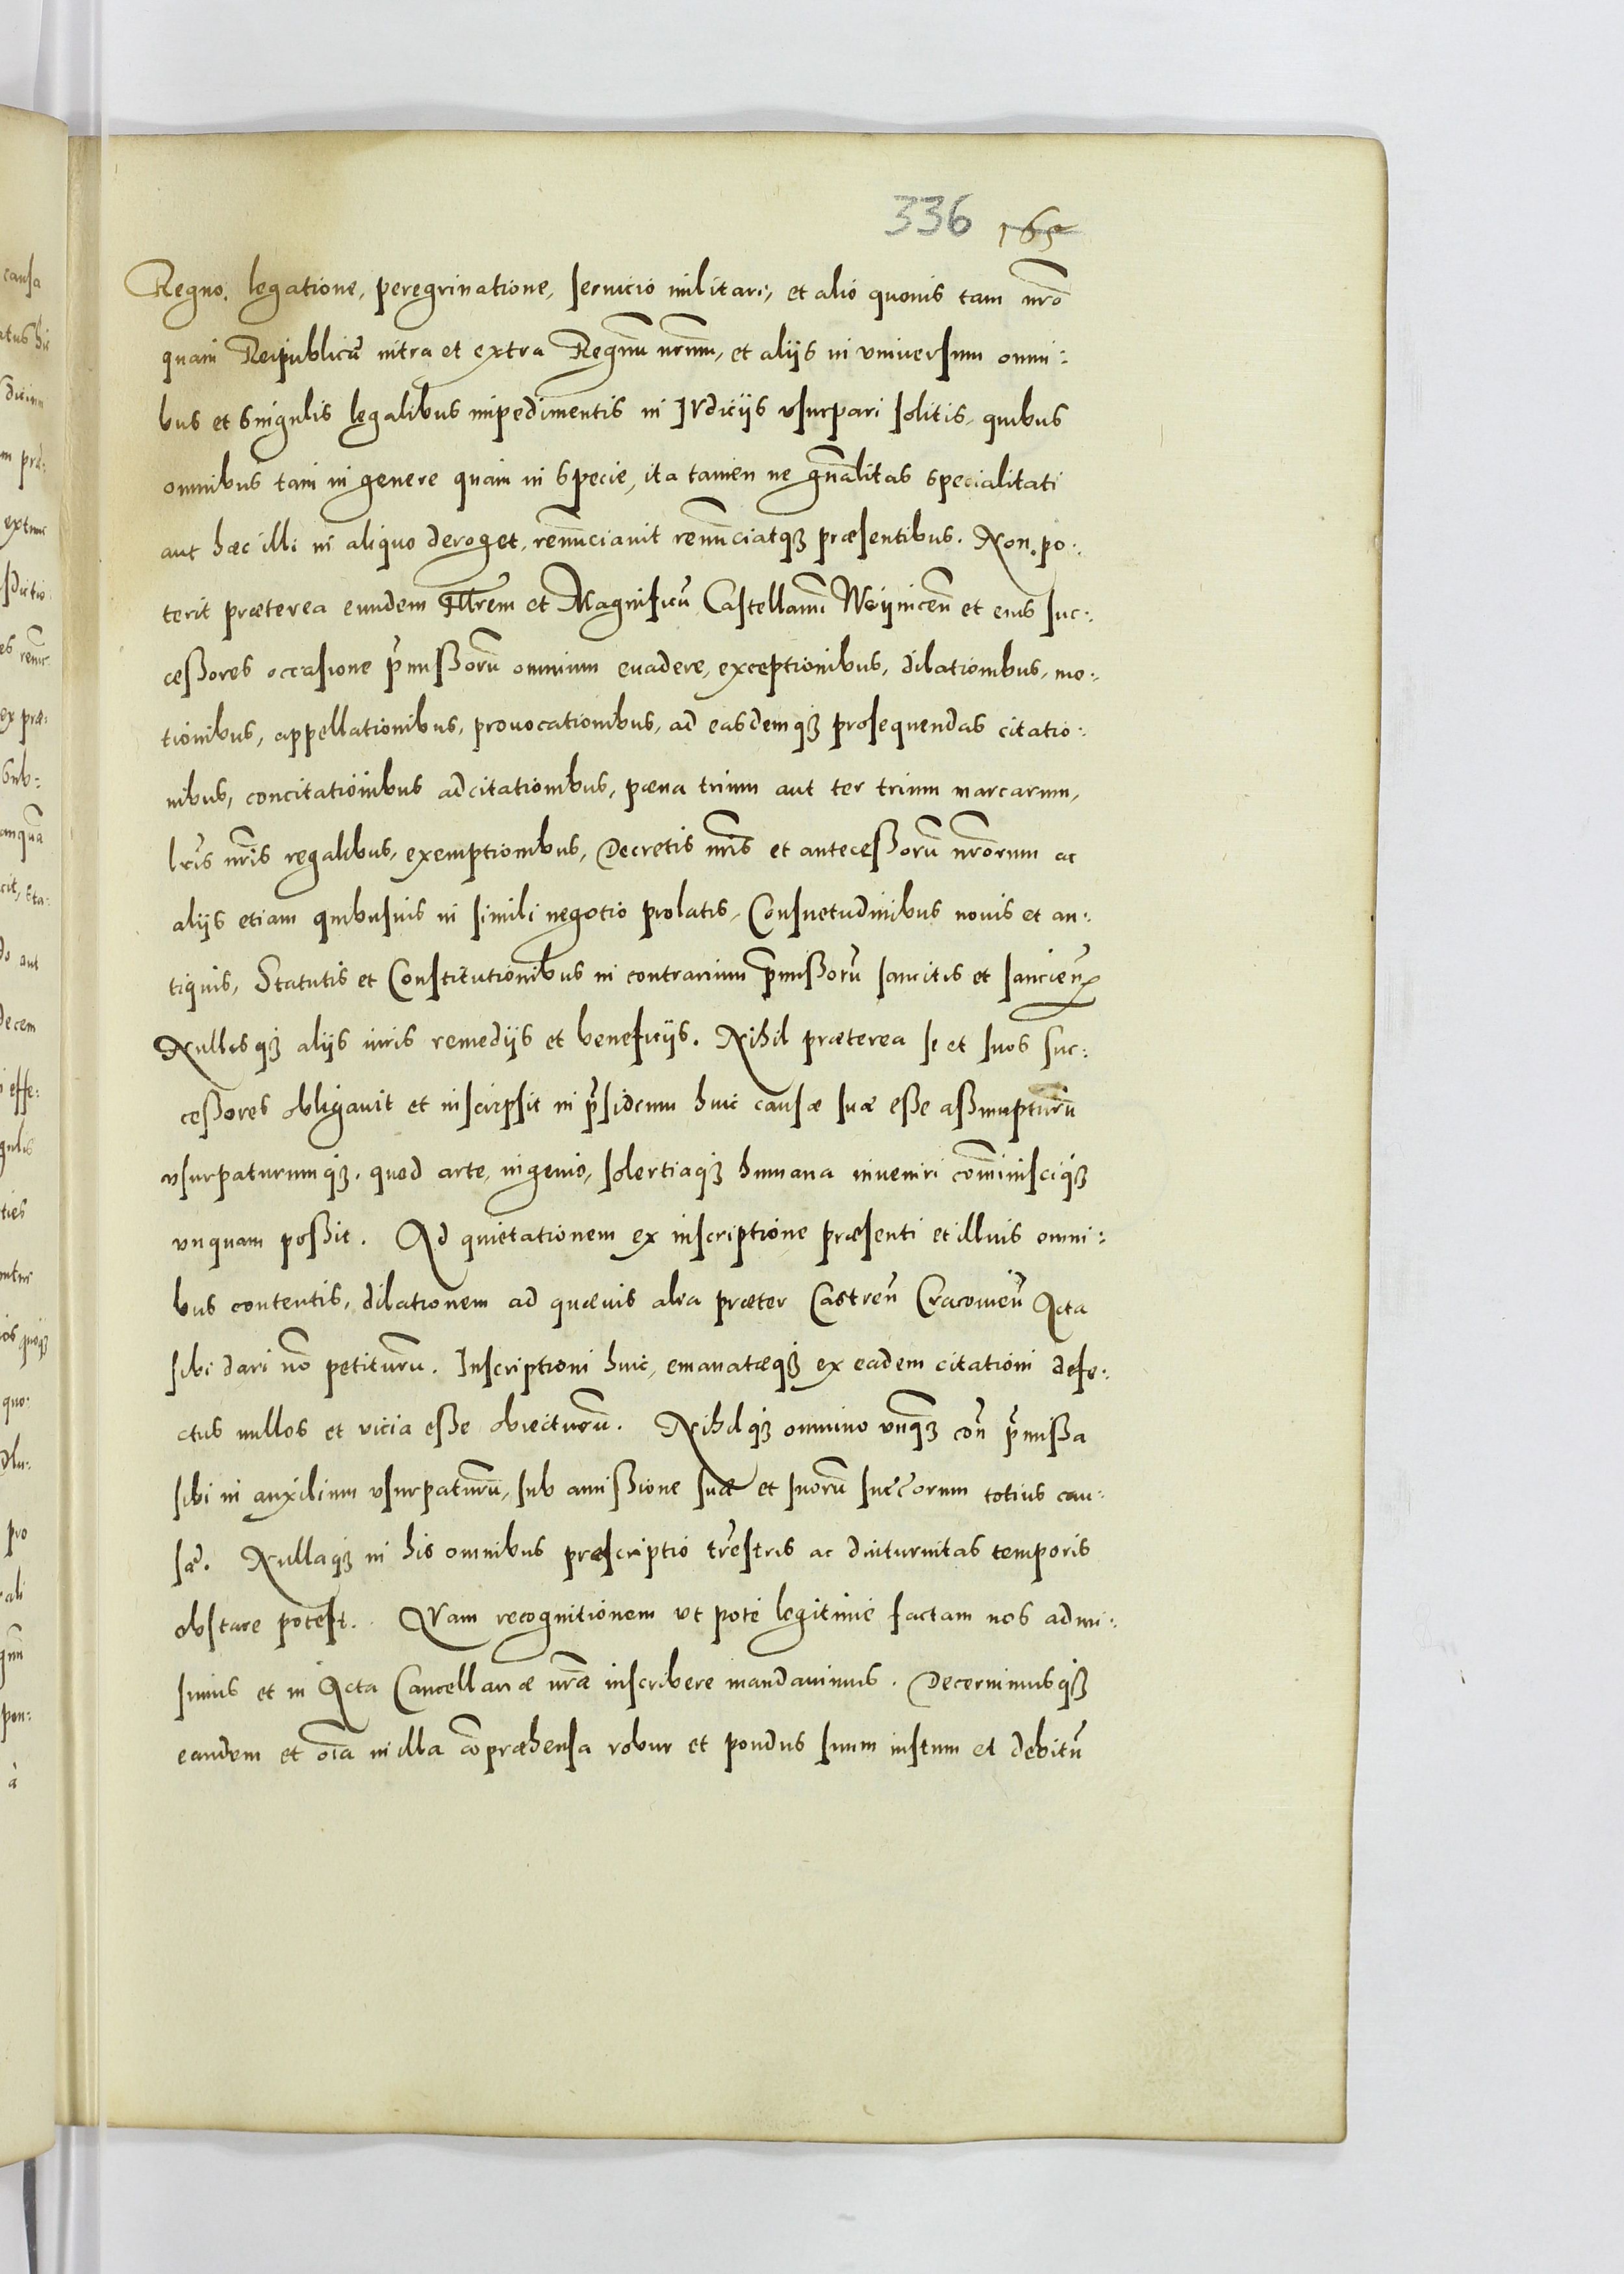 336 165
Regno, legatione, peregrinatione, seruicio militari, et alio quouis tam nr̃o
quam Reipublicæ intra et extra Regnũ nr̃um, et alijs in vniuersum omni:
bus et singulis legalibus impedimentis in IVdicijs vsurpari solitis, quibus
omnibus tam in genere quam in specie, ita tamen ne gñalitas specialitati
aut hæc illi in aliquo deroget, renũciauit renũciatqꝫ præsentibus. Non po:
terit præterea eundem Illrem et Magnificũ Castellanũ Woyniceñ et eius suc:
ceßores occasione p̃mißorũ omnium euadere, exceptionibus, dilationibus, mo:
tionibus, appellationibus, prouocationibus, ad easdemqꝫ prosequendas citatio:
nibus, concitationibus adcitationibus, pæna trium aut ter trium marcarum,
lr̃is nr̃is regalibus, exemptionibus, Decretis nr̃is et anteceßorũ nr̃orum ac
alijs etiam quibusuis in simili negotio prolatis, Consuetudinibus nouis et an:
tiquis, Statutis et Constitutionibus in contrarium p̃mißorũ sancitis et sancieñ
Nullisqꝫ alijs iuris remedijs et beneficijs. Nihil præterea se et suos suc:
ceßores obligauit et inscripsit in p̃sidium huic causæ suæ eße aßumpturũ
vsurpaturumqꝫ, quod arte, ingenio, solertiaqꝫ humana inueniri com̃inisciqꝫ
vnquam poßit. Ad quietationem ex inscriptione præsenti et illius omni:
bus contentis, dilationem ad quæuis alia præter Castreñ Cracouieñ Acta
sibi dari nõ petiturũ. Inscriptioni huic, emanatæqꝫ ex eadem citationi defe:
ctus nullos et vicia eße obiecturũ. Nihilqꝫ omnino vnqꝫ coñ p̃mißa
sibi in auxilium vsurpaturũ, sub amißione suæ et suorũ succ̃orum totius cau:
sæ. Nullaqꝫ in his omnibus præscriptio tr̃estris ac diuturnitas temporis
obstare potest. QVam recognitionem vt pote legitimè factam nos admi:
simus et in Acta Cancellariæ nr̃æ inscribere mandauimus. Decernimusqꝫ
eandem et oĩa in illa cõpræhensa robur et pondus suum iustum et debitũ